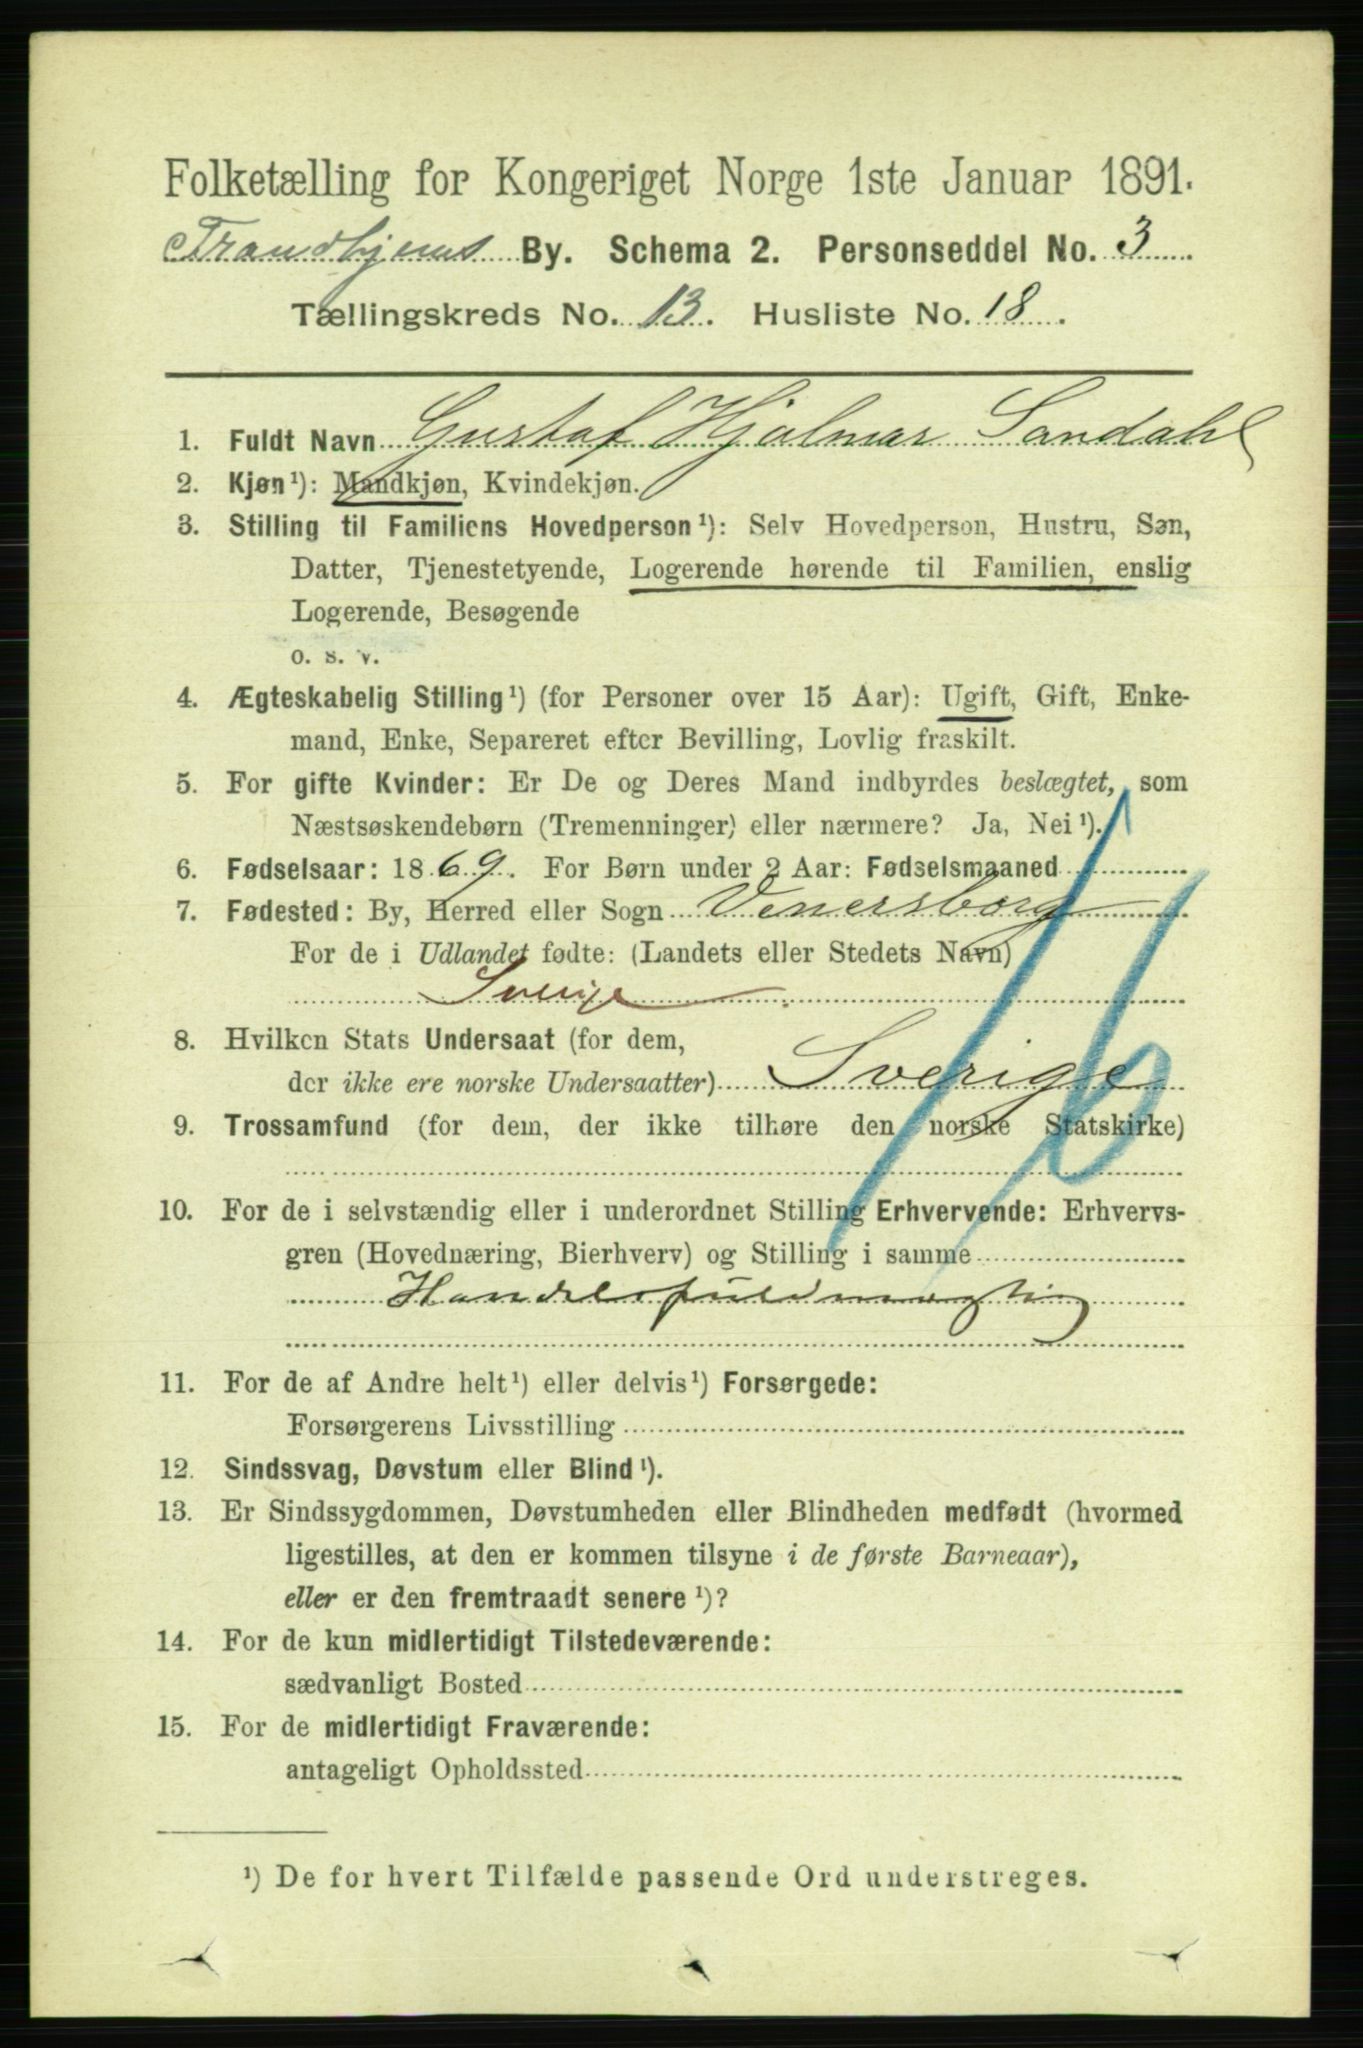 Folketælling for Kongeriget Norge 1ste Januar 1891.
Trondhjems By. Schema 2. Personseddel No. 3
Tællingskreds No. 13. Husliste No. 18.
1. Fuldt Navn Gustaf Hjalmar Sandahl
2. Kjøn¹): Mandkjøn, Kvindekjøn.
3. Stilling til Familiens Hovedperson¹): Selv Hovedperson, Hustru, Søn,
Datter, Tjenestetyende, Logerende hørende til Familien, enslig
Logerende, Besøgende
o. s. v.
4. Ægteskabelig Stilling¹) (for Personer over 15 Aar): Ugift, Gift, Enke-
mand, Enke, Separeret efter Bevilling, Lovlig fraskilt.
5. For gifte Kvinder: Er De og Deres Mand indbyrdes beslægtet, som
Næstsøskendebørn (Tremenninger) eller nærmere? Ja, Nei¹).
6. Fødselsaar: 1869. For Børn under 2 Aar: Fødselsmaaned
7. Fødested: By, Herred eller Sogn Venersborg
For de i Udlandet fødte: (Landets eller Stedets Navn)
Sverige
8. Hvilken Stats Undersaat (for dem,
der ikke ere norske Undersaatter) Sverige
9. Trossamfund (for dem, der ikke tilhøre den norske Statskirke)
10. For de i selvstændig eller i underordnet Stilling Erhvervende: Erhvervs-
gren (Hovednæring, Bierhverv) og Stilling i samme
Handelsfuldmægtig
11. For de af Andre helt¹) eller delvis¹) Forsørgede:
Forsørgerens Livsstilling
12. Sindssvag, Døvstum eller Blind¹).
13. Er Sindssygdommen, Døvstumheden eller Blindheden medfødt (hvormed
ligestilles, at den er kommen tilsyne i de første Barneaar),
eller er den fremtraadt senere¹)?
14. For de kun midlertidigt Tilstedeværende:
sædvanligt Bosted
15. For de midlertidigt Fraværende:
antageligt Opholdssted
¹) De for hvert Tilfælde passende Ord understreges.